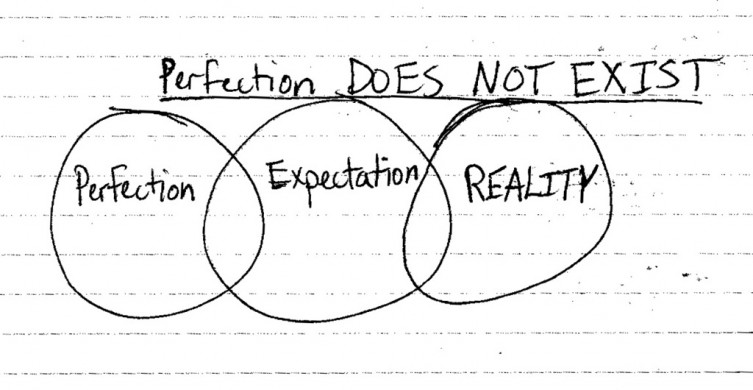 Perfection DOES NOT EXIST
Perfection Expectation REALITY